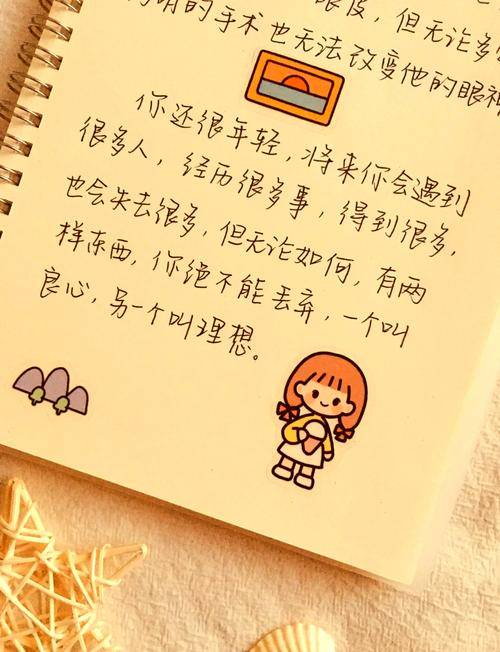 眼皮，但无论多
的手术也无法改变他的眼神
你还很年轻，将来你会遇到
很多人，经历很多事，得到很多，
也会失去很多，但无论如何，有两
样东西，你绝不能丢弃，一个叫
良心，另一个叫理想。